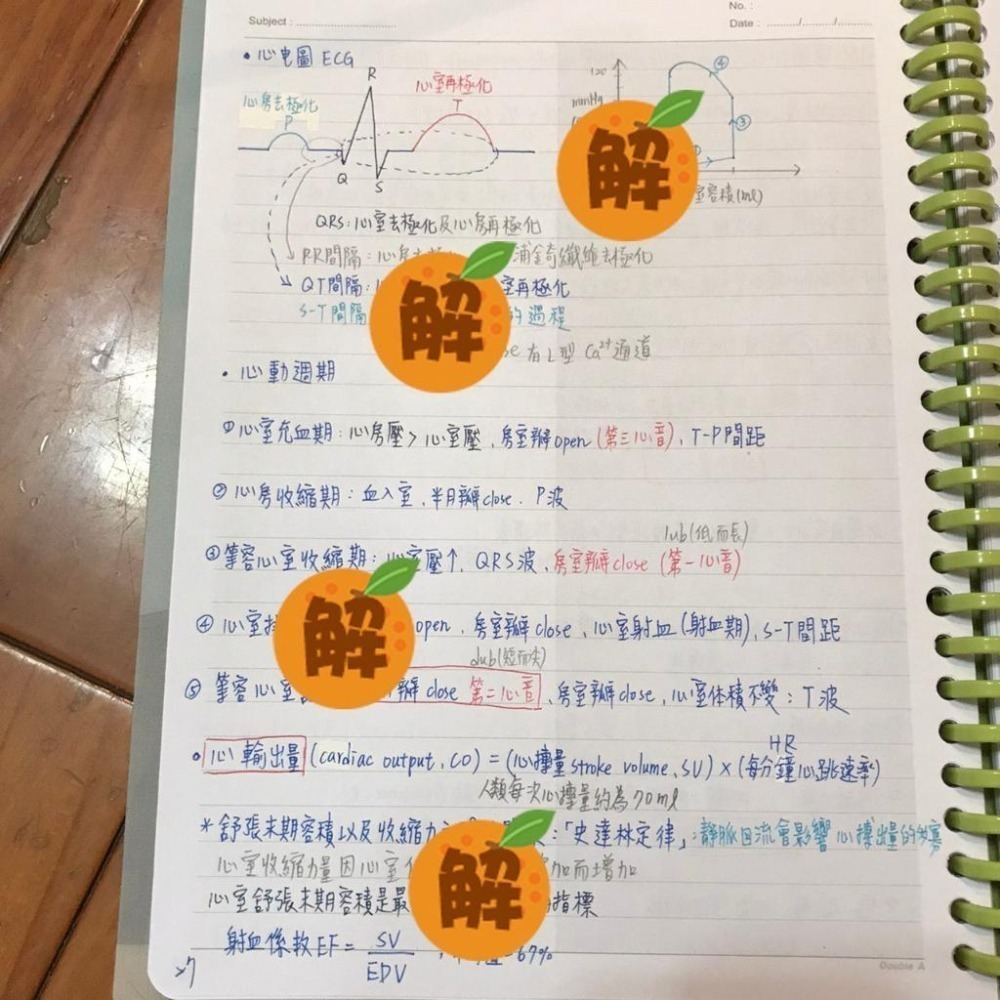 No. :
Subject :
Date : / /
• 心电圖 ECG
R
心室再極化
T
心房去極化
P
Q
S
120
mmHg
④
③
容積(ml)
解
QRS: 心室去極化及心房再極化
PR間隔: 心房 浦金奇纖維去極化
QT間隔: 室再極化
S-T間隔 的過程
解
有L型 Ca²⁺通道
• 心動週期
① 心室充血期: 心房壓 > 心室壓, 房室瓣open (第三心音), T-P間距
② 心房收縮期: 血入室, 半月瓣close. P波
lub(低而長)
③ 等容心室收縮期: 心室壓↑, QRS波, 房室瓣close (第一心音)
解
④ 心室 open, 房室瓣close, 心室射血(射血期), S-T間距
dub(短而尖)
⑤ 等容心室 瓣 close 第二心音, 房室瓣close, 心室体積不變: T波
HR
• 心輸出量 (cardiac output, CO) = (心搏量 stroke volume, SV) × (每分鐘心跳速率)
人類每次心搏量約為70ml
* 舒張末期容積以及收縮力 :「史達林定律」: 靜脈回流會影響心搏出量的
心室收縮力量因心室 加而增加
解
心室舒張末期容積是最 指標
射血係數 EF = SV / EDV 67%
27
Double A